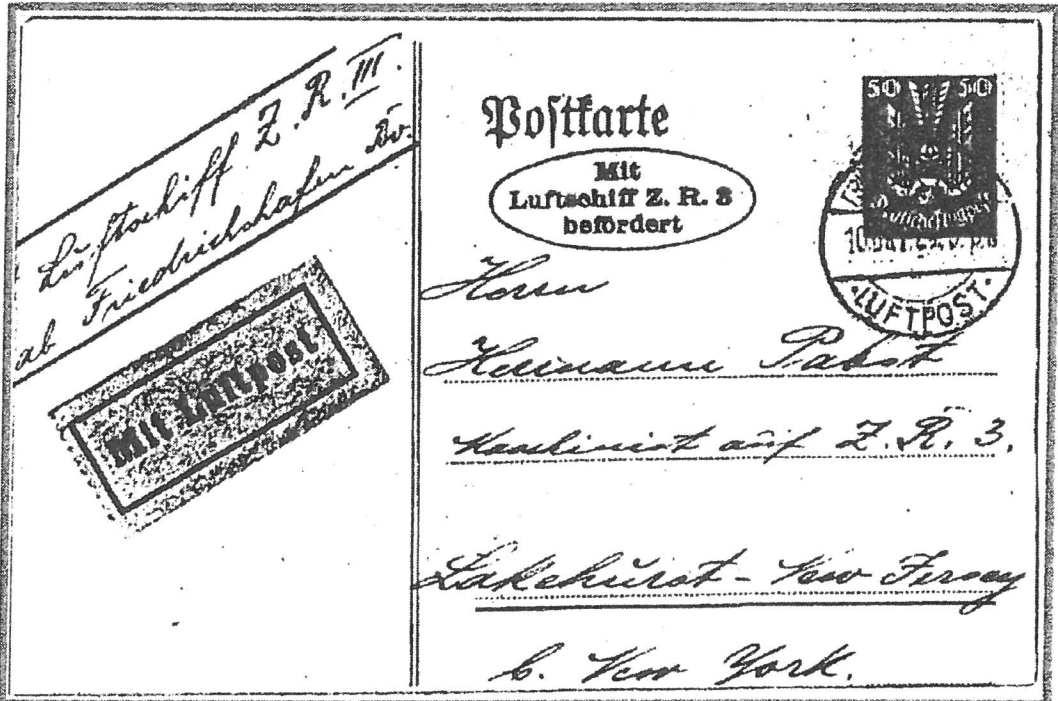 Luftschiff Z. R. III.
ab Friedrichshafen Bo.
Mit Luftpost
Postkarte
Mit
Luftschiff Z. R. 3
befördert
50 50
Deutsche Flugpost
LUFTPOST
Herrn
Hermann Pabst
Maschinist auf Z. R. 3.
Lakehurst - New Jersey
b. New York.